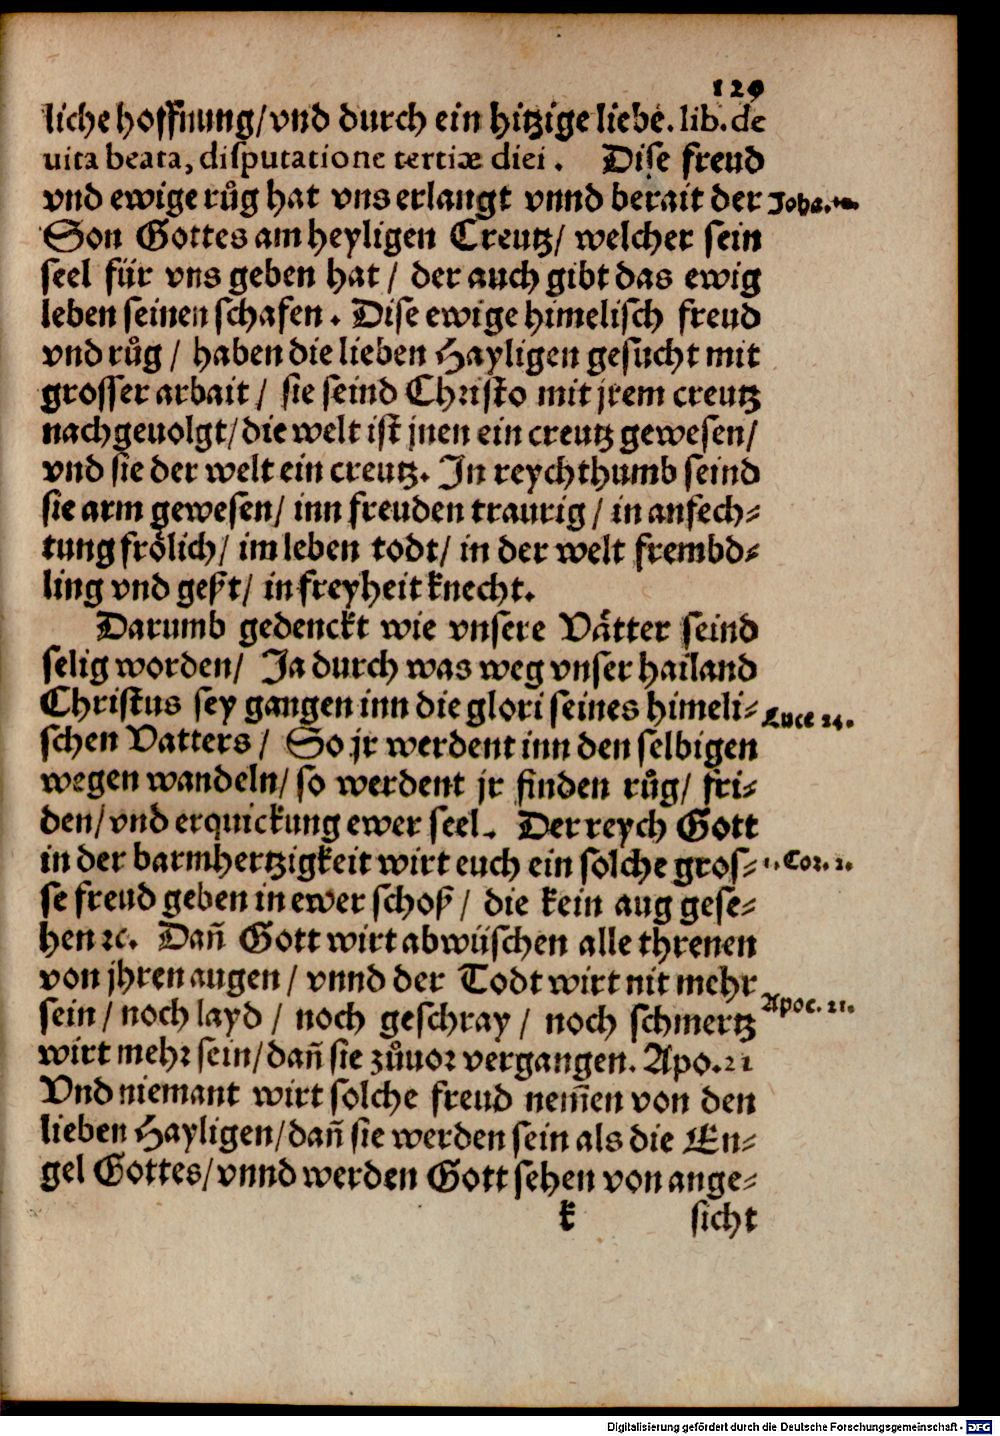 129
liche hoffnung/vnd durch ein hitzige liebe. lib. de
uita beata, disputatione tertiæ diei. Dise freud
vnd ewige růg hat vns erlangt vnnd berait der Joha.
Son Gottes am heyligen Creutz/ welcher sein
seel für vns geben hat/ der auch gibt das ewig
leben seinen schafen. Dise ewige himelisch freud
vnd růg/ haben die lieben Hayligen gesucht mit
grosser arbait/ sie seind Christo mit jrem creutz
nachgeuolgt/die welt ist jnen ein creutz gewesen/
vnd sie der welt ein creutz. In reychthumb seind
sie arm gewesen/ inn freuden traurig/ in anfech⸗
tung frölich/ im leben todt/ in der welt frembd⸗
ling vnd geßt/ in freyheit knecht.
Darumb gedenckt wie vnsere Vätter seind
selig worden/ Ja durch was weg vnser hailand
Christus sey gangen inn die glori seines himeli⸗ Luce 24.
schen Vatters/ So jr werdent inn den selbigen
wegen wandeln/ so werdent jr finden růg/ fri⸗
den/vnd erquickung ewer seel. Der reych Gott
in der barmhertzigkeit wirt euch ein solche gros⸗ 1. Cor. 2.
se freud geben in ewer schoß/ die kein aug gese⸗
hen ꝛc. Dañ Gott wirt abwüschen alle threnen
von jhren augen/ vnnd der Todt wirt nit mehr
sein/ noch layd/ noch geschray/ noch schmertz Apoc. 21.
wirt mehr sein/dañ sie zůuor vergangen. Apo. 21
Vnd niemant wirt solche freud nem̄en von den
lieben Hayligen/dañ sie werden sein als die En⸗
gel Gottes/vnnd werden Gott sehen von ange⸗
k sicht
Digitalisierung gefördert durch die Deutsche Forschungsgemeinschaft - DFG